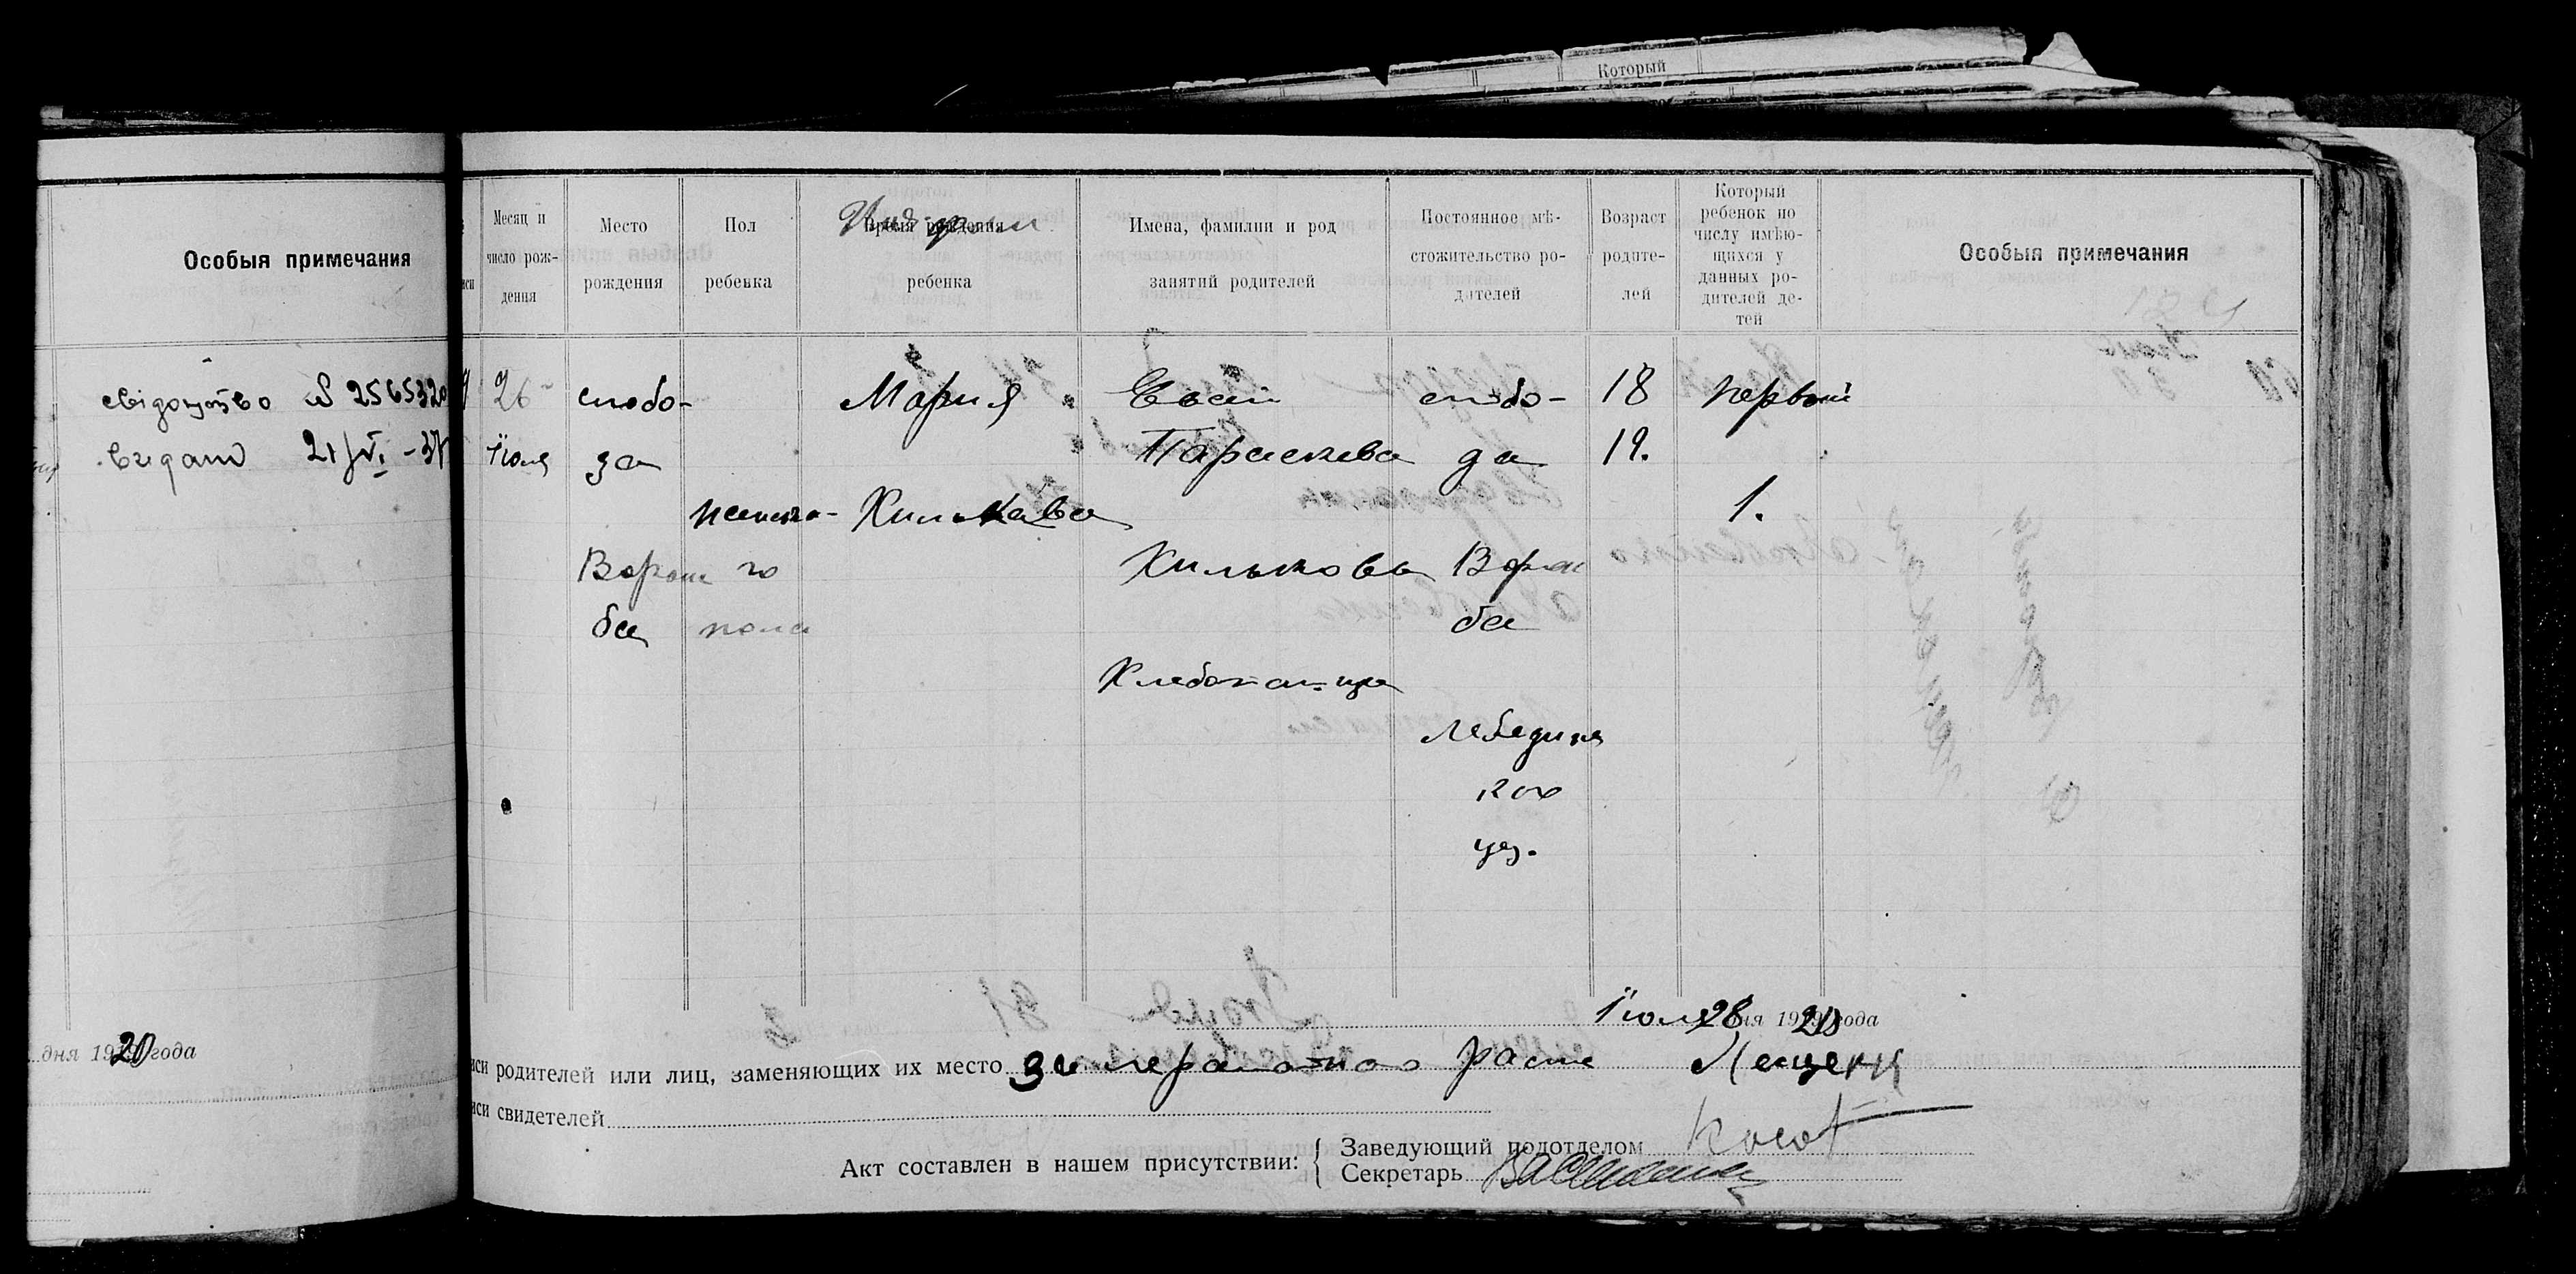 Который
Особыя примечания
свідоцтво № 2565320
видано 21/VI - 37
дня 1920 года
Месяц и число рождения
Место рождения
Пол ребенка
Время рождения ребенка
Имена, фамилии и род занятий родителей
Постоянное мѣстожительство родителей
Возраст родителей
Который ребенок по числу имѣющихся у данных родителей детей
Особыя примечания
26 Июля
слобода
Ворож
ба
женско-
го
пола
Мария
Хилькова
Евсей
Параскева
Хильковы
Хлебопашце
слобо-
да
Ворож
ба
Лебединс
ког
уез.
18
19.
первый
1.
Июля 28 дня 1920 года
иси родителей или лиц, заменяющих их место за неграмотного расп Лещенк
иси свидетелей
Акт составлен в нашем присутствии:
Заведующий подотделом
Секретарь